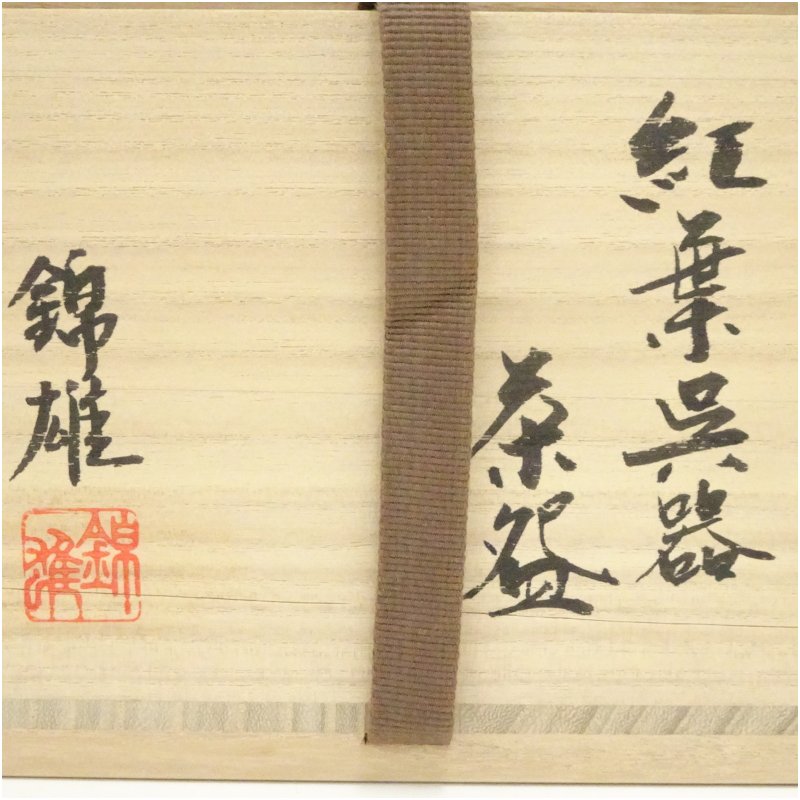 紅葉呉器
茶盌
錦雄
錦雄